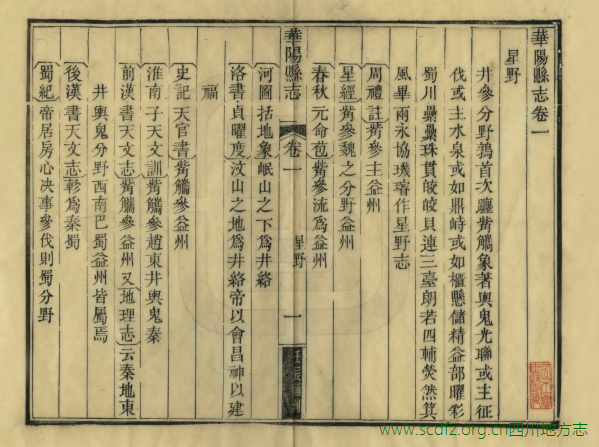 華陽縣志卷一
星野
井參分野鶉首次躔觜觿象著輿鬼光聯或主征
伐或土水泉或如鼎峙或如櫃懸儲精益部曜彩
蜀川纍纍珠貫皎皎貝連三臺朗若四輔熒然箕
風畢雨永協璣璿作星野志
周禮註觜參主益州
星經觜參魏之分野益州
春秋元命苞觜參流為益州
華陽縣志
卷一
星野
一
河圖括地象岷山之下為井絡
洛書貞曜度汶山之地為井絡帝以會昌神以建
福
史記天官書觜觿參益州
淮南子天文訓觜觿參趙東井輿鬼秦
前漢書天文志觜觿參益州又地理志云秦地東
井輿鬼分野西南巴蜀益州皆屬焉
後漢書天文志軫為秦蜀
蜀紀帝居房心決事參伐則蜀分野
www.scdfz.org.cn四川地方志